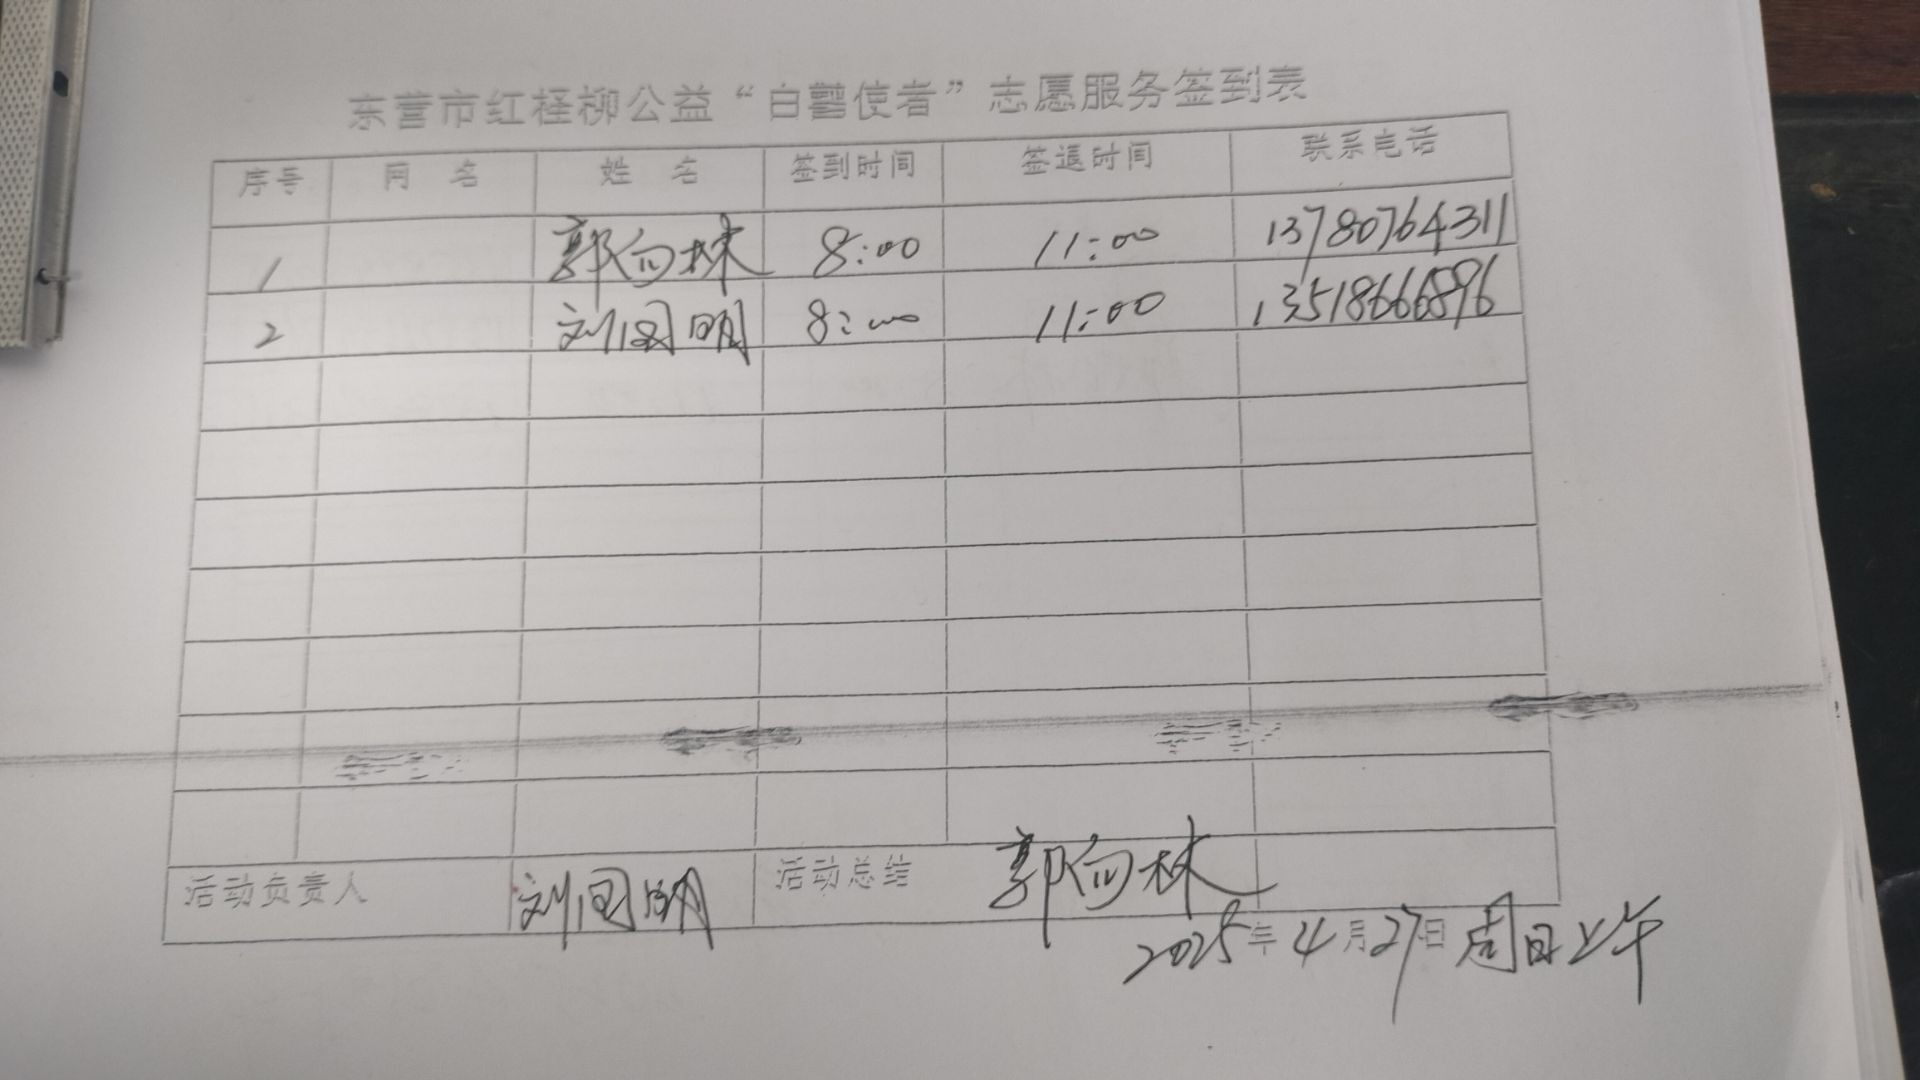 东营市红柽柳公益“白鹳使者”志愿服务签到表
序号 网 名 姓 名 签到时间 签退时间 联系电话
1 郭向林 8:00 11:00 13780764311
2 刘国明 8:00 11:00 13518666896
活动负责人 刘国明 活动总结 郭向林
2025年4月27日 周日上午